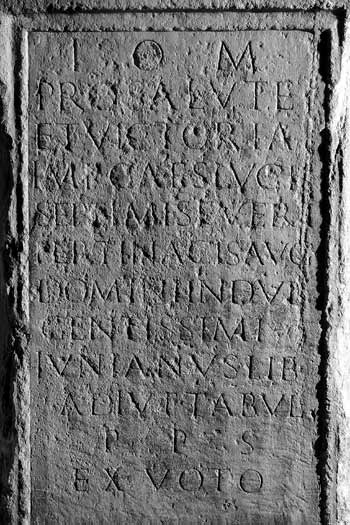 I O M
PRO SALVTE
ET VICTORIA
IMP CAES LVCI
SEPTIMI SEVERI
PERTINACIS AVG
DOMINI INDVL
GENTISSIMI
IVNIANVS LIB
ADIVT TABVL
P P S
EX VOTO